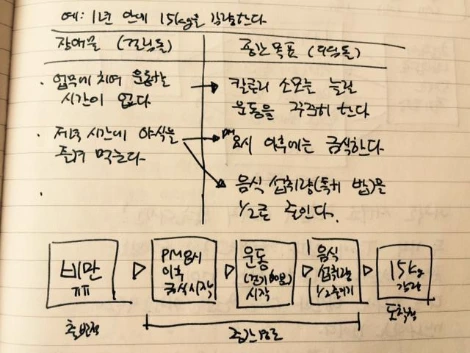 예: 1년 안에 15kg을 감량한다
장애물 (걸림돌)
중간목표 (디딤돌)
· 업무에 치여 운동할
시간이 없다
칼로리 소모를 늘릴
운동을 꾸준히 한다
· 저녁 시간에 야식을
즐겨 먹는다.
PM 8시 이후에는 금식한다.
음식 섭취량(특히 밥)을
1/2로 줄인다.
비만
ㅠㅠ
PM8시
이후
금식시작
운동
시작
음식
섭취량
1/2줄이기
15kg
감량
출발점
도착점